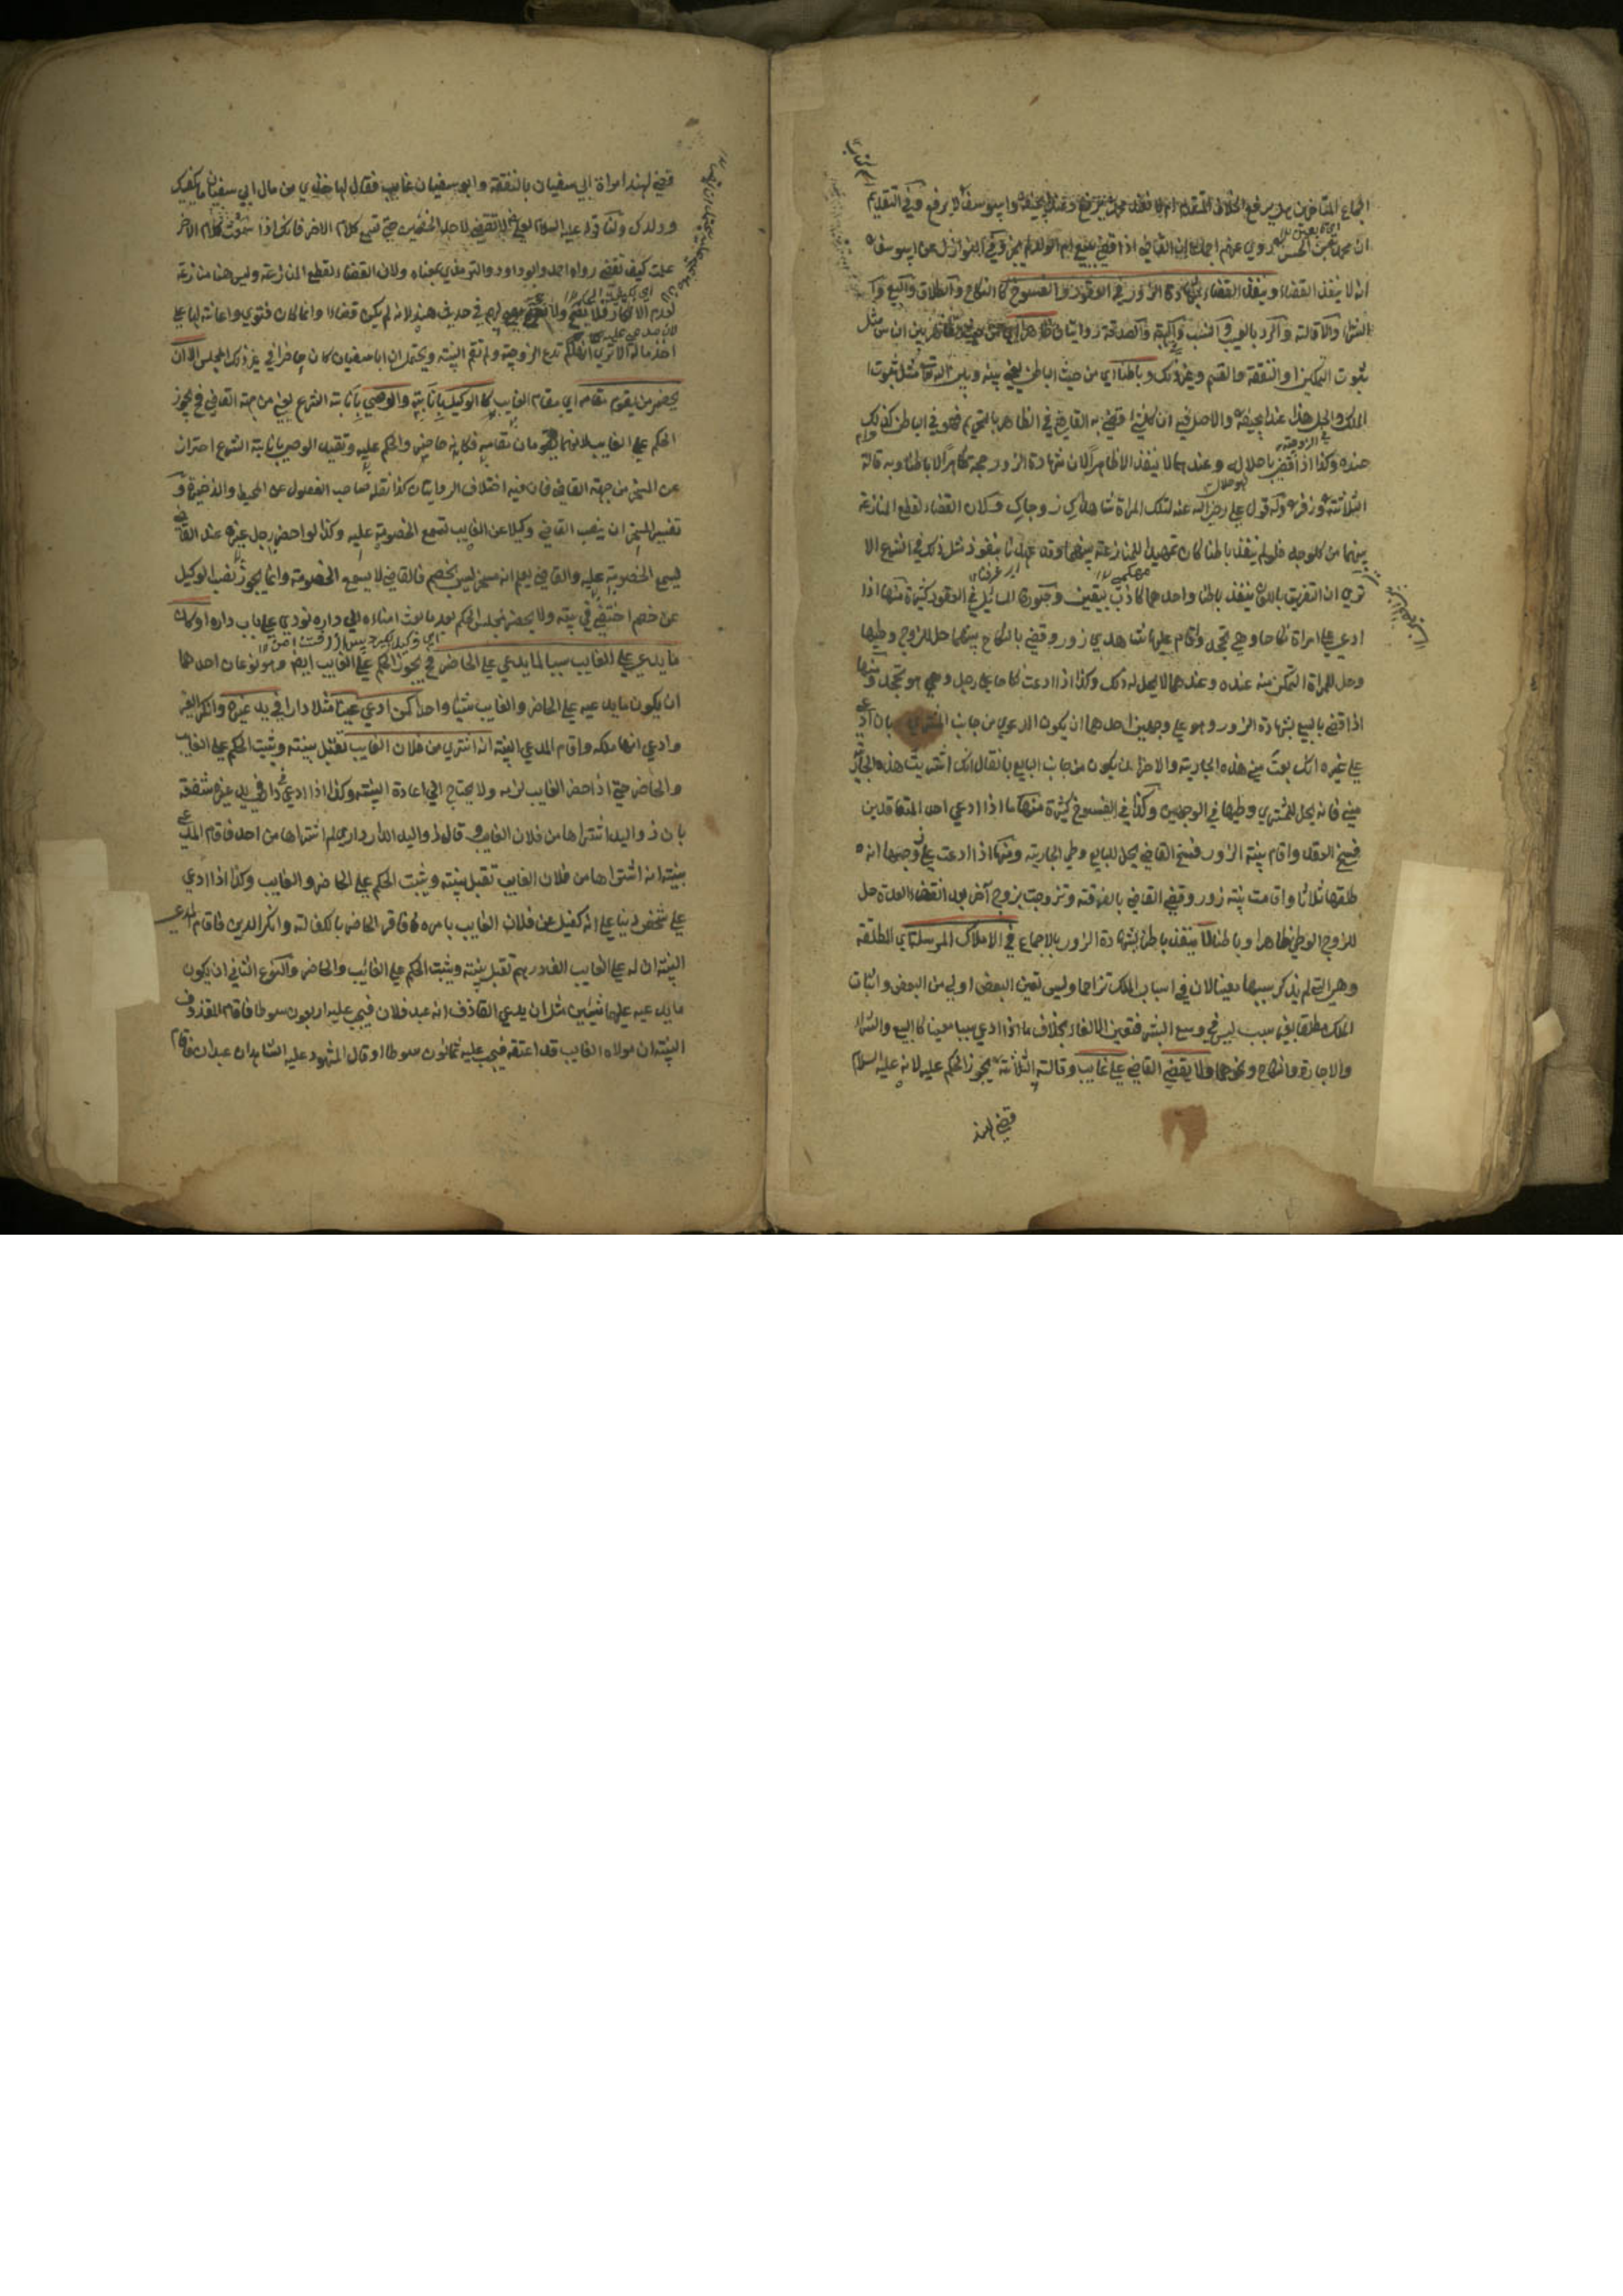 اجماع المتاخرين هل يرفع الخلاف المتقدم ام لا فعند محمد يرفع وعند ابي حنيفة وابي يوسف لا يرفع وفي التقويم
ان محمدا روي عنهم اجماعا ان القاضي اذا قضي ببيع ام الولد لم يجز وفي النوازل عن ابي يوسف
انه لا ينفذ القضاء وينفذ القضاء بشهادة الزور في العقود والفسوخ كالنكاح والطلاق والبيع و
الشراء والاقالة والرد بالعيب والنسب و الهبة والصدقة روايتان ظاهرا
ثبوت التمكين والنفقة والقسم وغير ذلك وباطنا اي من حيث الباطن يعني بينه وبين الله تعالي مثل ثبوت
الملك والحل هذا عند ابي حنيفة والاصل فيه ان كل شئ قضي به القاضي في الظاهر بالتحريم فهو في الباطن كذلك
عنده وكذا اذا قضي باحلال وعندهما لا ينفذ الا ظاهرا لان شهادة الزور حجة ظاهرا لا باطنا وبه قالت
الثلاثة وزفر وله قول علي رضي الله عنه لتلك المراة شاهداك زوجاك فكان القضاء لقطع المنازعة
بينهما من كل وجه فلو لم ينفذ باطنا كان تمهيدا للمنازعة بينهما وقد عهدنا بنفوذ مثل ذلك في الشرع الا
تري ان التفريق باللعان ينفذ باطنا واحدهما كاذب بيقين وصورة المسائل في العقود كثيرة منها اذا
ادعي علي امراة نكاحا وهي تجحد واقام عليها شاهدي زور وقضي بالنكاح بينهما حل للزوج وطيها
وحل للمراة التمكين منه عنده وعندهما لا يحل له ذلك وكذا اذا ادعت نكاحا علي رجل وهو يجحد ومنها
اذا قضي بالبيع بشهادة الزور وهو علي وجهين احدهما ان يكون الدعوي من جانب المشتري بان ادعي
علي غيره انك بعت مني هذه الجارية والاخر ان يكون من جانب البايع بان قال انك اشتريت هذه الجارية
مني فانه يحل للمشتري وطيها في الوجهين وكذا في الفسوخ كثيرة منها ما اذا ادعي احد المتعاقدين
فسخ العقد واقام بينة الزور ففسخ القاضي يحل للبايع وطي الجارية ومنها اذا ادعت علي زوجها انه
طلقها ثلاثا واقامت بينة زور وقضي القاضي بالفرقة وتزوجت بزوج آخر بعد انقضاء العدة حل
للزوج الوطي ظاهرا وباطنا لا ينفذ باطنا بشهادة الزور بالاجماع في الاملاك المرسلة اي المطلقة
وهي التي لم يذكر سببها معينا لان في اسباب الملك تزاحما وليس تعين البعض اولي من البعض واثبات
الملك مطلقا بغير سبب ليس في وسع البشر فتعين الالغاء بخلاف ما اذا ادعي سببا معينا كالبيع والشراء
والاجارة والنكاح ونحوها ولا يقضي القاضي علي غايب وقالت الثلاثة يجوز الحكم عليه لانه عليه السلام
قضي لهند
قضي لهند امراة ابي سفيان بالنفقة وابو سفيان غايب فقال لها خذي من مال ابي سفيان ما يكفيك
وولدك ولنا قوله عليه السلام لعلي لا تقضي لاحد الخصمين حتي تسمع كلام الاخر فانك اذا سمعت كلام الاخر
علمت كيف تقضي رواه احمد وابو داود والترمذي بمعناه ولان القضاء لقطع المنازعة وليس هنا منازعة
لعدم الانكار فلا يصح ولا لهم في حديث هند لانه لم يكن قضاء وانما كان فتوي واعانة لها علي
اخذ ما له الا تري انها لم تدع الزوجية ولم تقم البينة ويحتمل ان ابا سفيان كان حاضرا في غير ذلك المجلس الا ان
يحضر من يقوم مقامه اي مقام الغايب كالوكيل بانابته والوصي بانابة الشرع يعني من جهة القاضي فح يجوز
الحكم علي الغايب لانهما يقومان مقامه فكانه حاضر والحكم عليه وتقييد الوصي بانابة الشرع احتراز
عن المسخر من جهة القاضي فان فيه اختلاف الروايتان كذا نقله صاحب الفصول عن المحيط والذخيرة و
تفسير المسخر ان ينصب القاضي وكيلا عن الغايب لتسمع الخصومة عليه وكذا لو احضر رجل غيره عند القاضي
ليسمع الخصومة عليه والقاضي يعلم انه مسخر ليس بخصم فالقاضي لا يسمع الخصومة وانما يجوز نصب الوكيل
عن خصم اختفي في بيته ولا يحضر مجلس الحكم بعد ما بعث امناءه الي داره نودي علي باب داره او كان
ما يدعي علي الغايب سببا لما يدعي علي الحاضر فح يجوز الحكم علي الغايب ايضا وهو نوعان احدهما
ان يكون ما يدعيه علي الحاضر والغايب شيئا واحدا كمن ادعي عينا مثلا دارا في يد غيره وانكر الغير
وادعي انها ملكه واقام المدعي البينة انه اشتري من فلان الغايب تقبل بينته ويثبت الحكم علي الغايب
والحاضر حتي اذا حضر الغايب لزمه ولا يحتاج الي اعادة البينة وكذا اذا ادعي دار في يد غيره شفعة
بان ذو اليد اشتراها من فلان الغايب وقال ذو اليد الدار داري لم اشتراها من احد فاقام المدعي
بينة انه اشتراها من فلان الغايب تقبل بينته ويثبت الحكم علي الحاضر والغايب وكذا اذا ادعي
علي شخص دينا علي انه كفيل عن فلان الغايب بامره فاقر الحاضر بالكفالة وانكر الدين فاقام المدعي
البينة ان له علي الغايب الف درهم تقبل بينته ويثبت الحكم علي الغائب والحاضر والنوع الثاني ان يكون
ما يدعيه عليهما شيئين مثل ان يدعي القاذف انه عبد فلان فيجب عليه اربعون سوطا فاقام المقذوف
البينة ان مولاه الغايب قد اعتقه فيجب عليه ثمانون سوطا او قال المشهود عليه الشاهدان عبدان فاقام